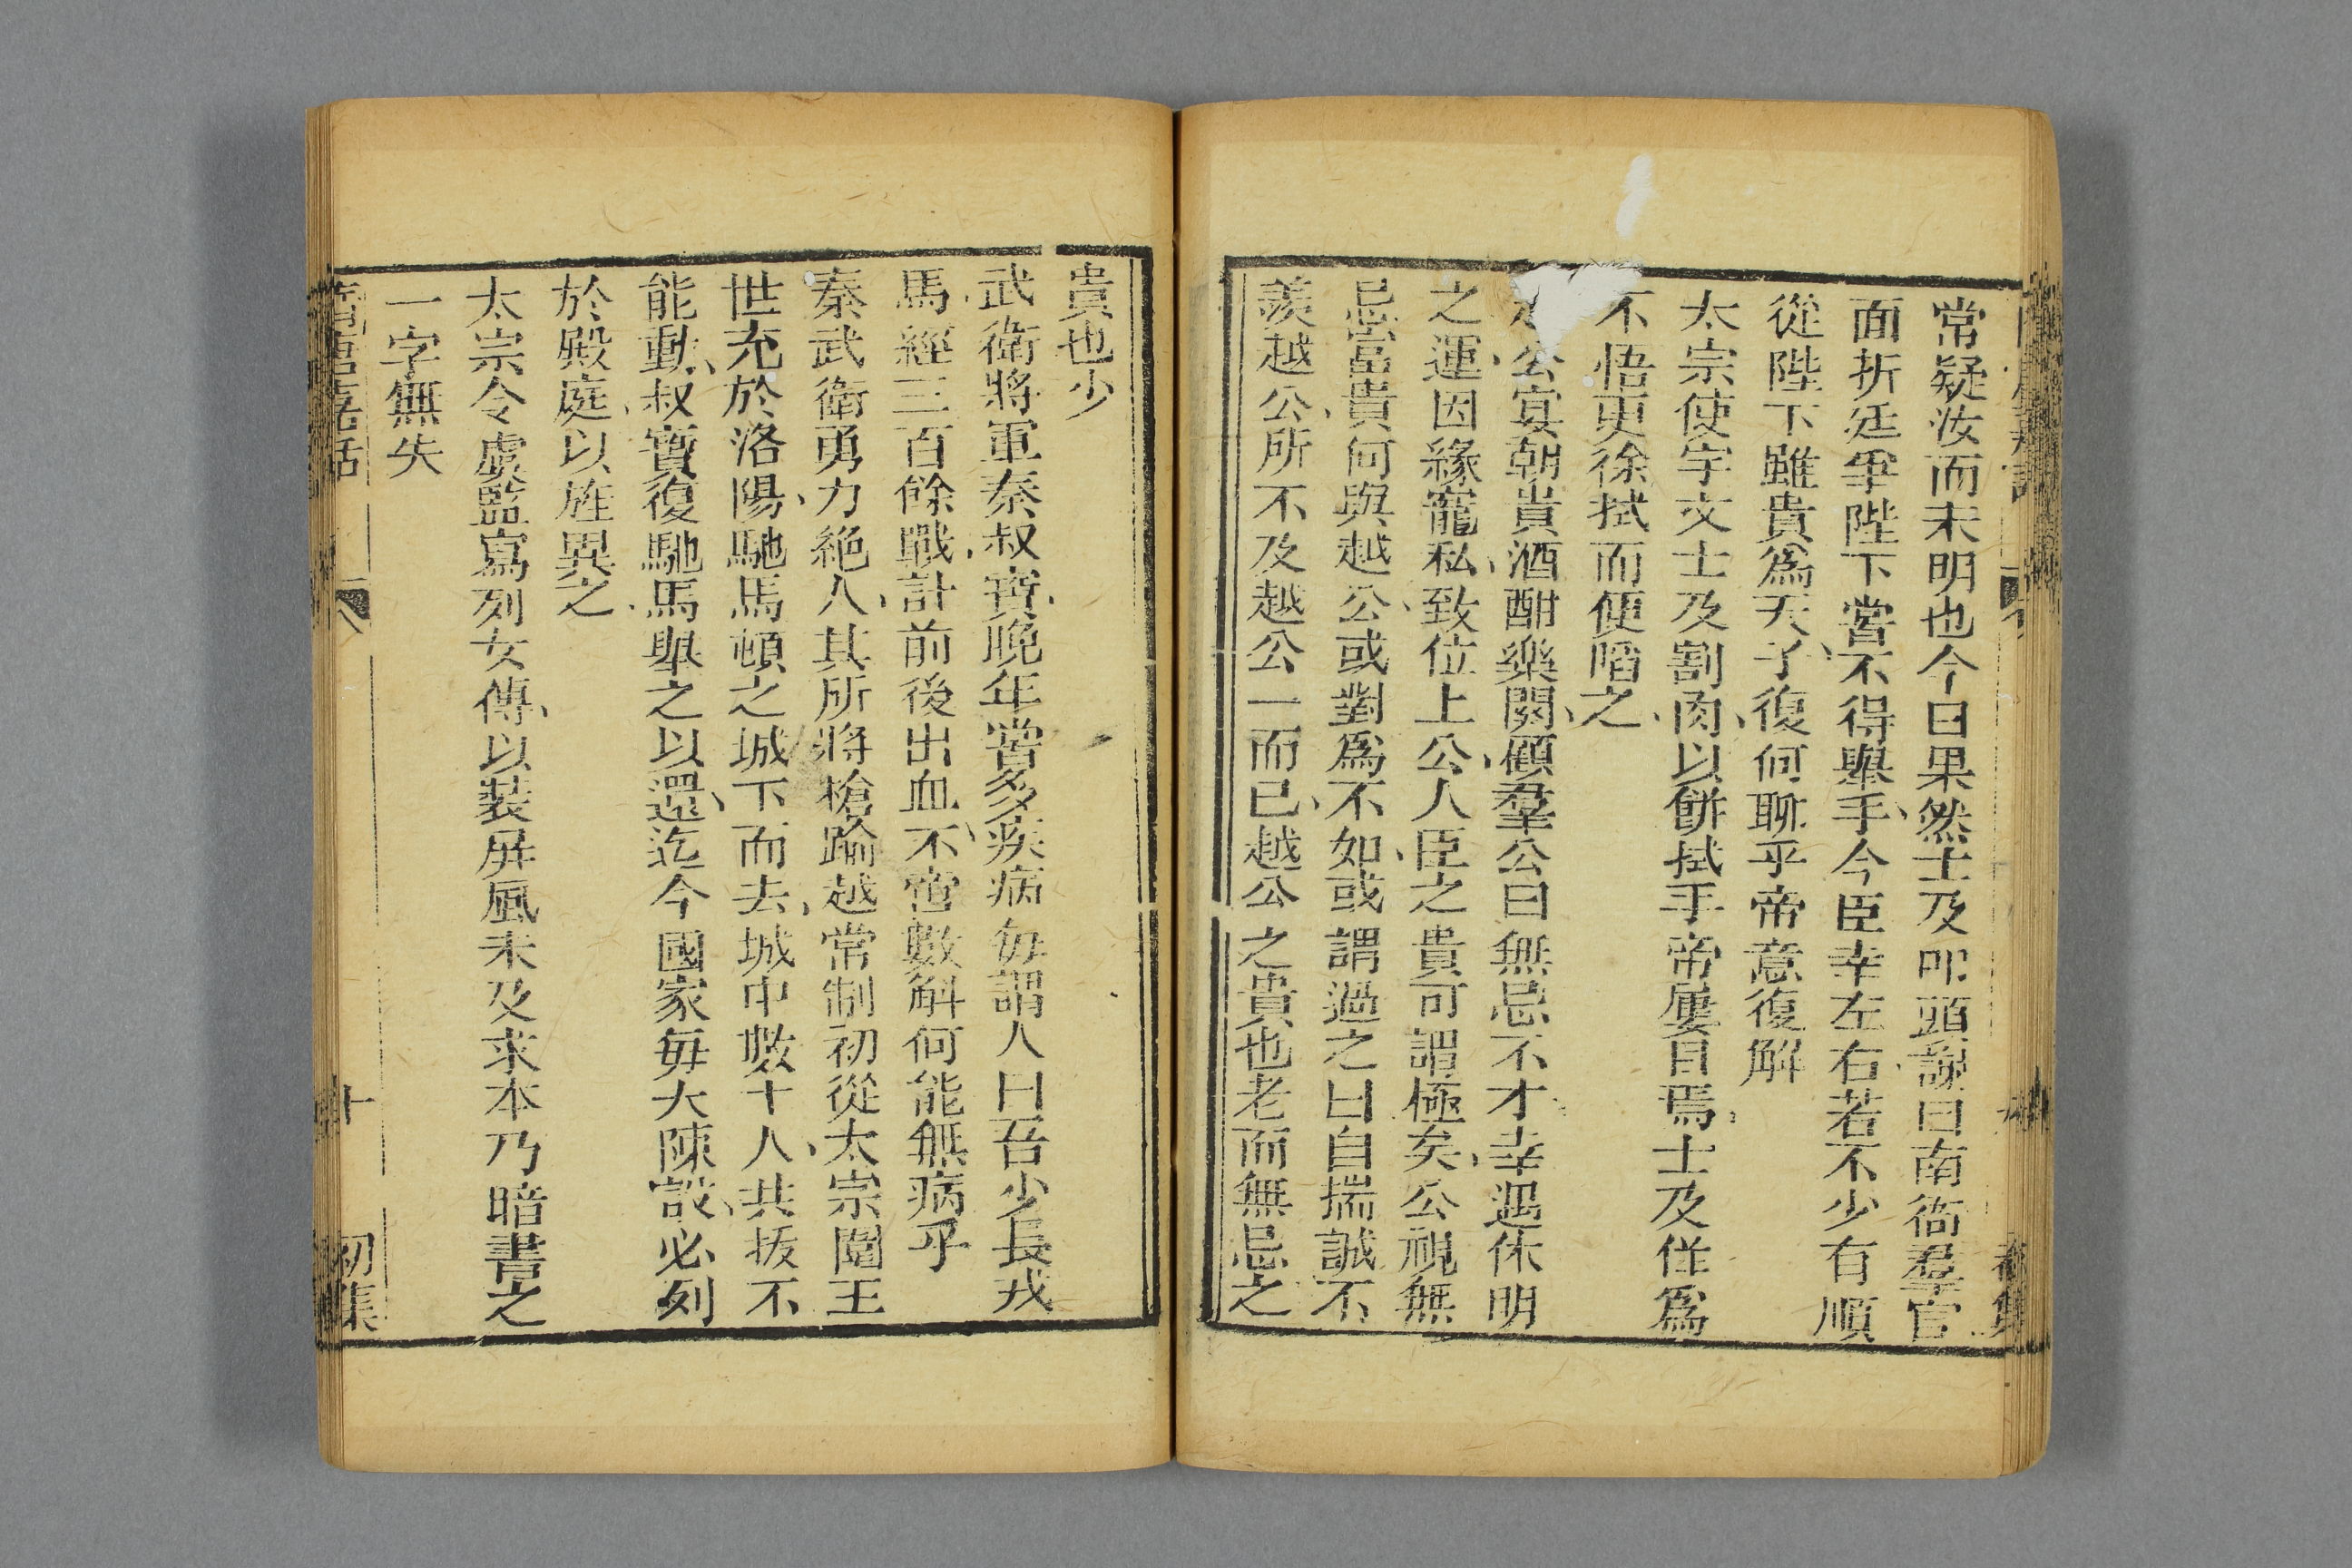 常疑汝而未明也今日果然士及叩頭謝曰南衙羣官
面折廷爭陛下嘗不得舉手今臣幸左右若不少有順
從陛下雖貴爲天子復何聊乎帝意復解
太宗使宇文士及割肉以餅拭手帝屢目焉士及佯爲
不悟更徐拭而便啗之
公宴朝貴酒酣樂闋顧羣公曰無忌不才幸遇休明
之運因緣寵私致位上公人臣之貴可謂極矣公視無
忌富貴何與越公或對爲不如或謂過之曰自揣誠不
羨越公所不及越公一而已越公之貴也老而無忌之
貴也少
武衛將軍秦叔寳晚年嘗多疾病每謂人曰吾少長戎
馬經三百餘戰計前後出血不啻數斛何能無病乎
秦武衛勇力絶人其所將槍踰越常制初從太宗圍王
世充於洛陽馳馬頓之城下而去城中數十人共拔不
能動叔寳復馳馬舉之以還迄今國家每大陳設必列
於殿庭以旌異之
太宗令虞監寫列女傳以裝屏風未及求本乃暗書之
一字無失
隋唐嘉話
十
初集